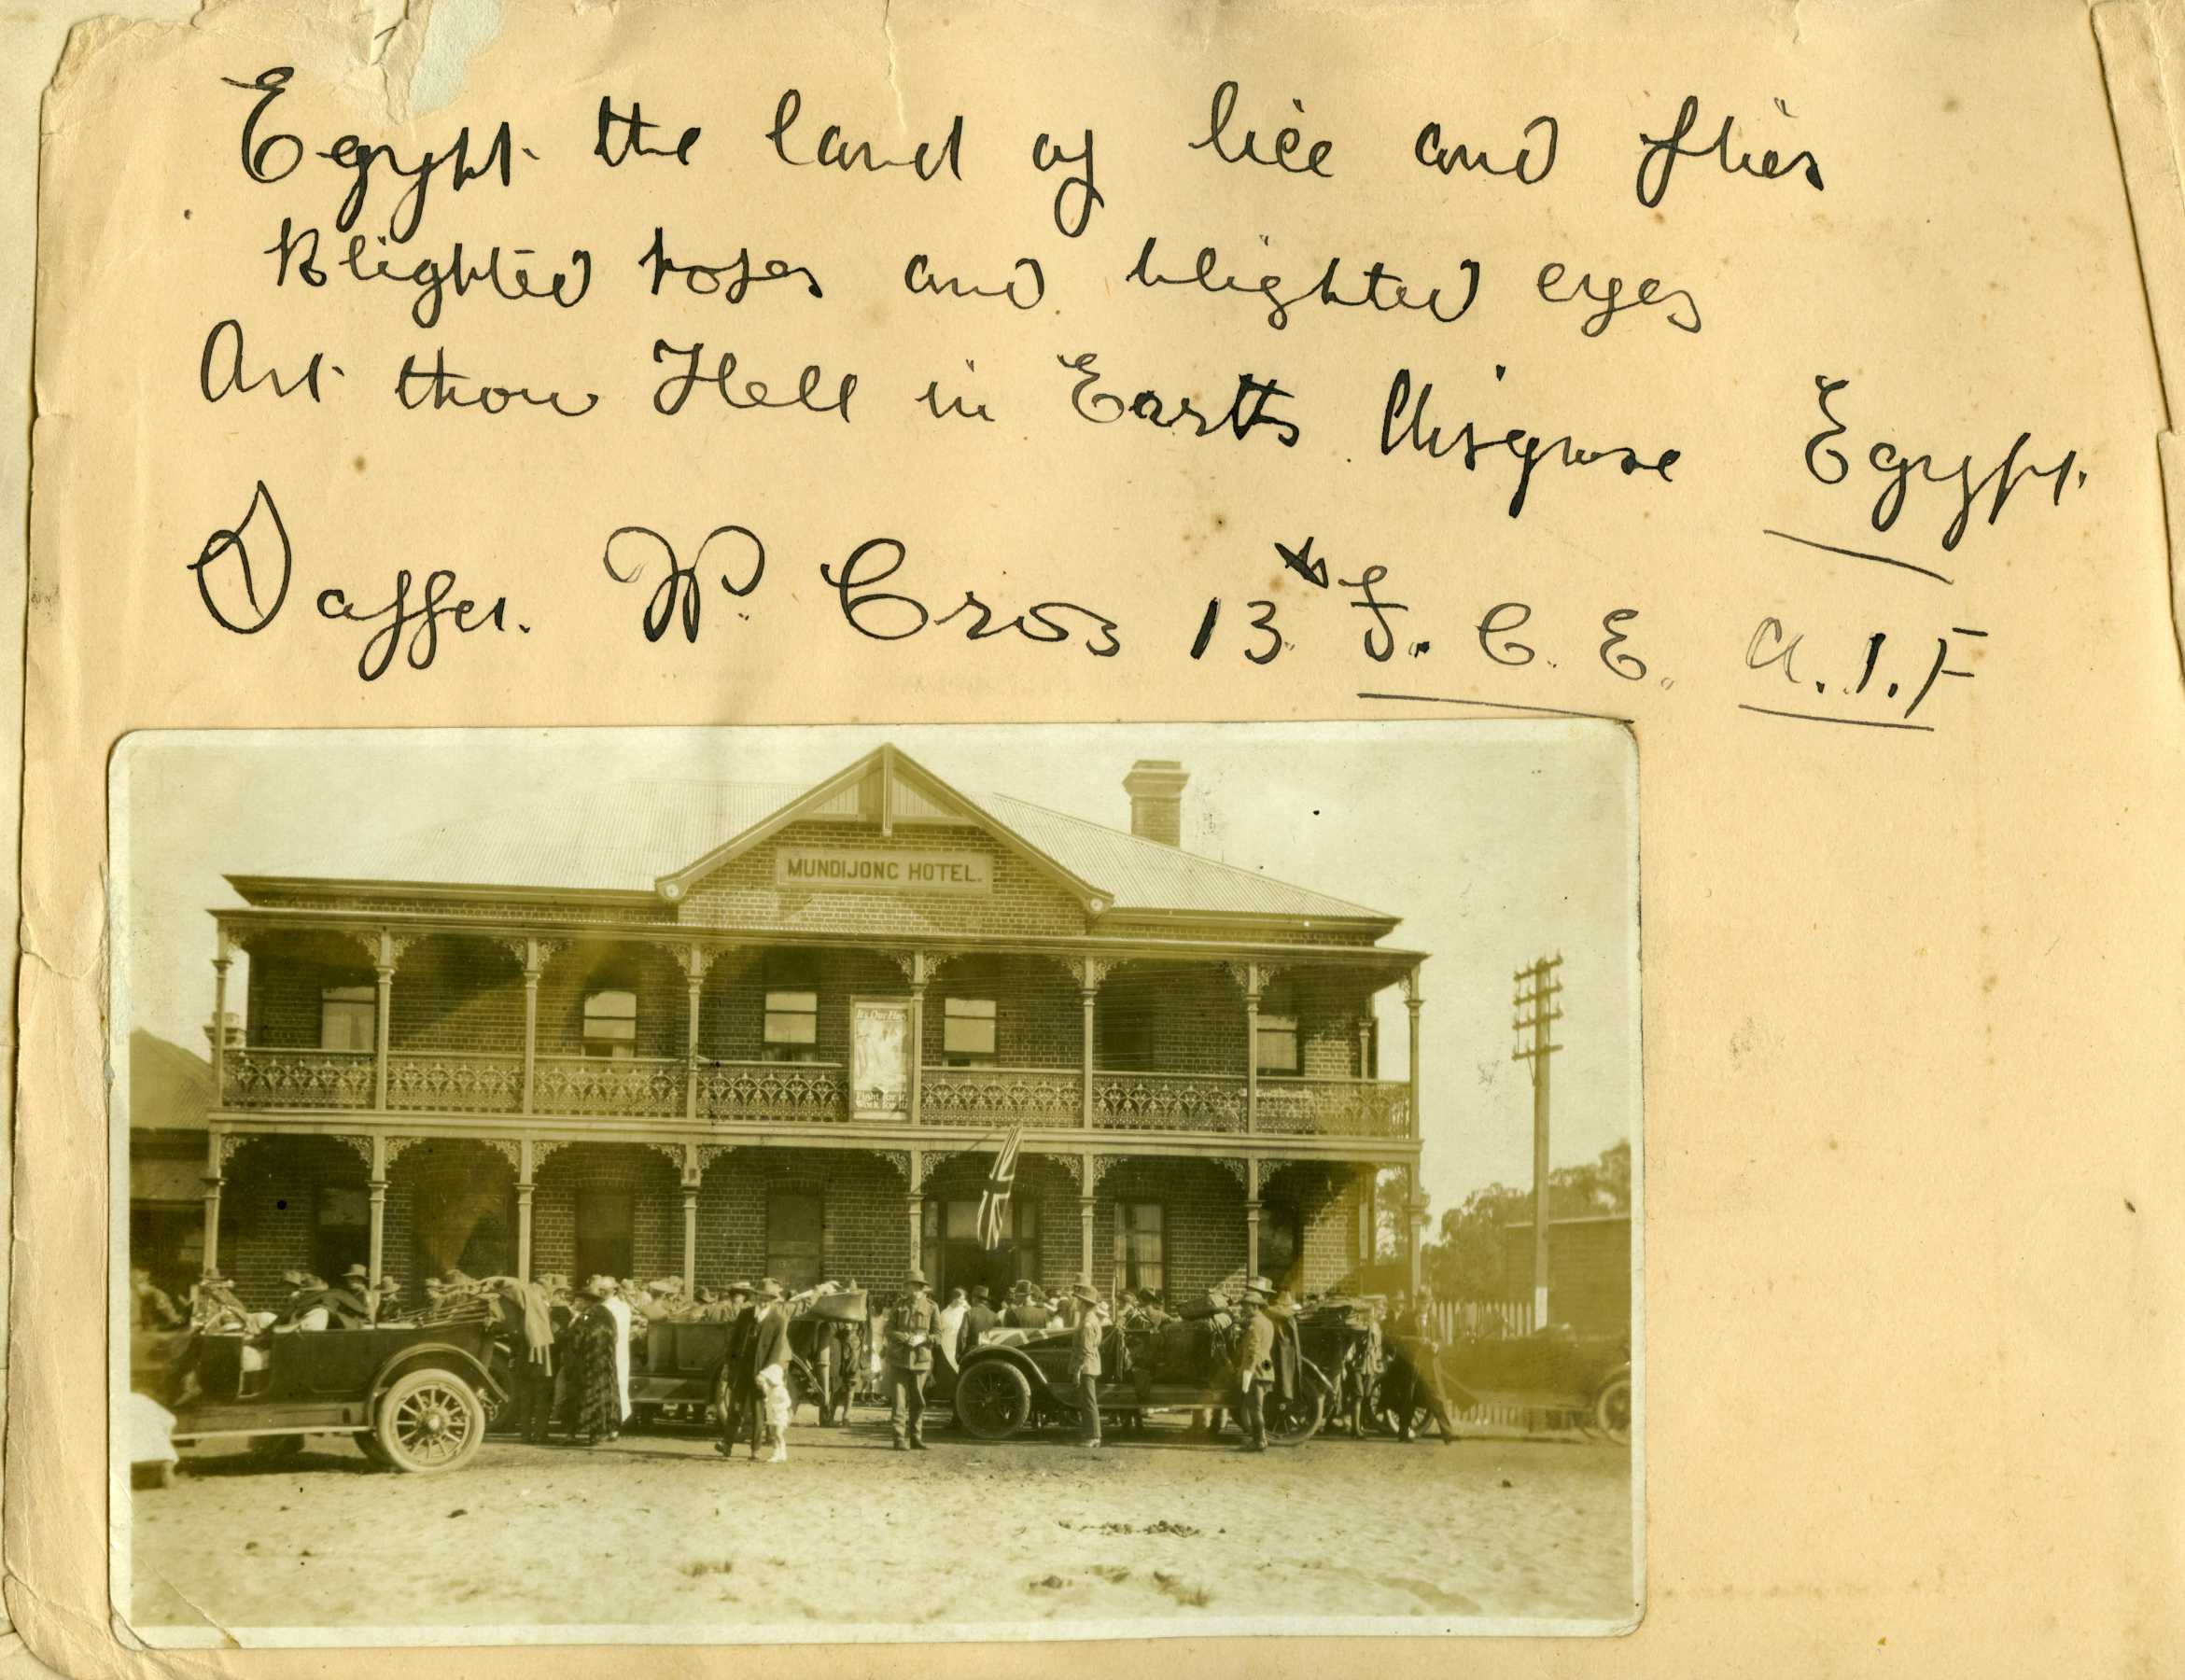 Egypt the land of lice and flies
Blighted hopes and blighted eyes
Art thou Hell in Earths Disguise Egypt.
Sapper. W. Cross 13th F. C. E. A.I.F
MUNDIJONG HOTEL.
It's Our Flag
Fight for it
Work for it